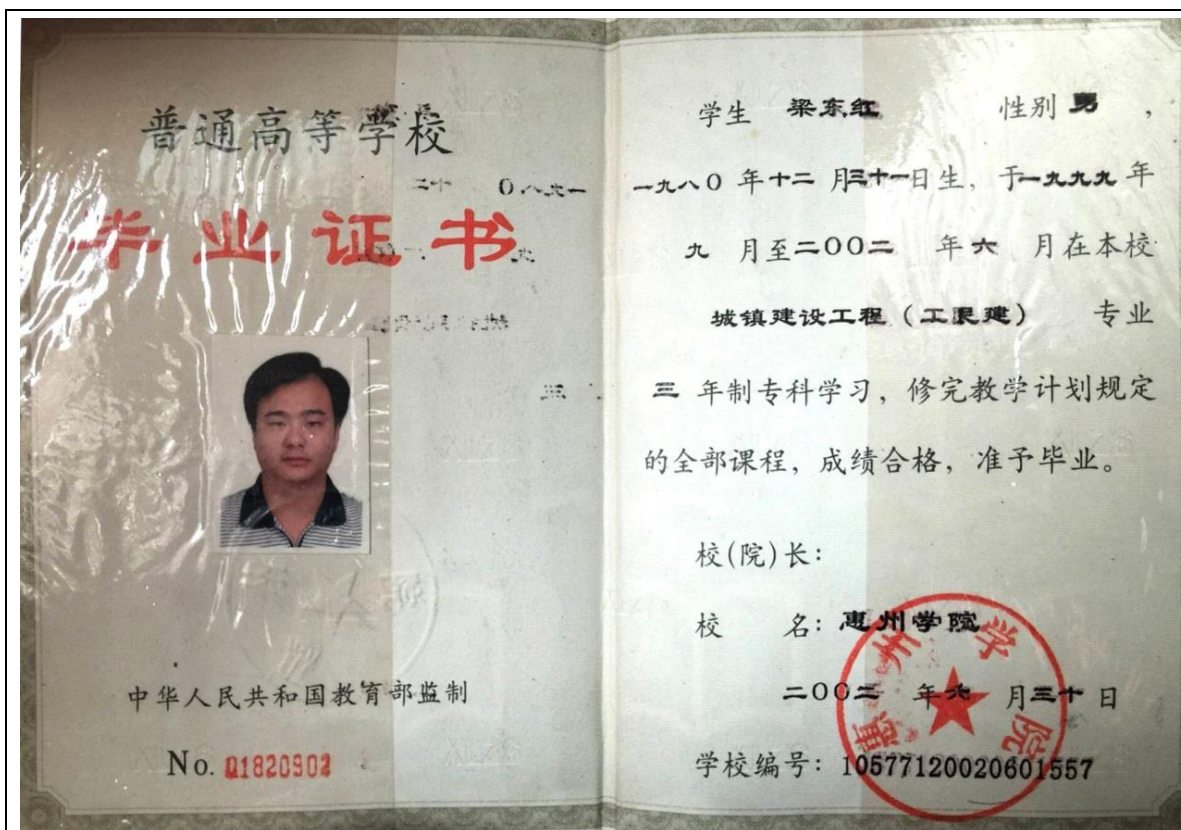 普通高等学校
毕业证书
中华人民共和国教育部监制
No. 01820902
学生 梁东红 性别 男 ,
一九八0 年十二 月三十一日生, 于一九九九 年
九 月至二00二 年六 月在本校
城镇建设工程（工民建） 专业
三 年制专科学习, 修完教学计划规定
的全部课程, 成绩合格, 准予毕业。
校(院)长:
校 名: 惠州学院
二00二 年六 月三十 日
学校编号: 10577120020601557
惠州学院